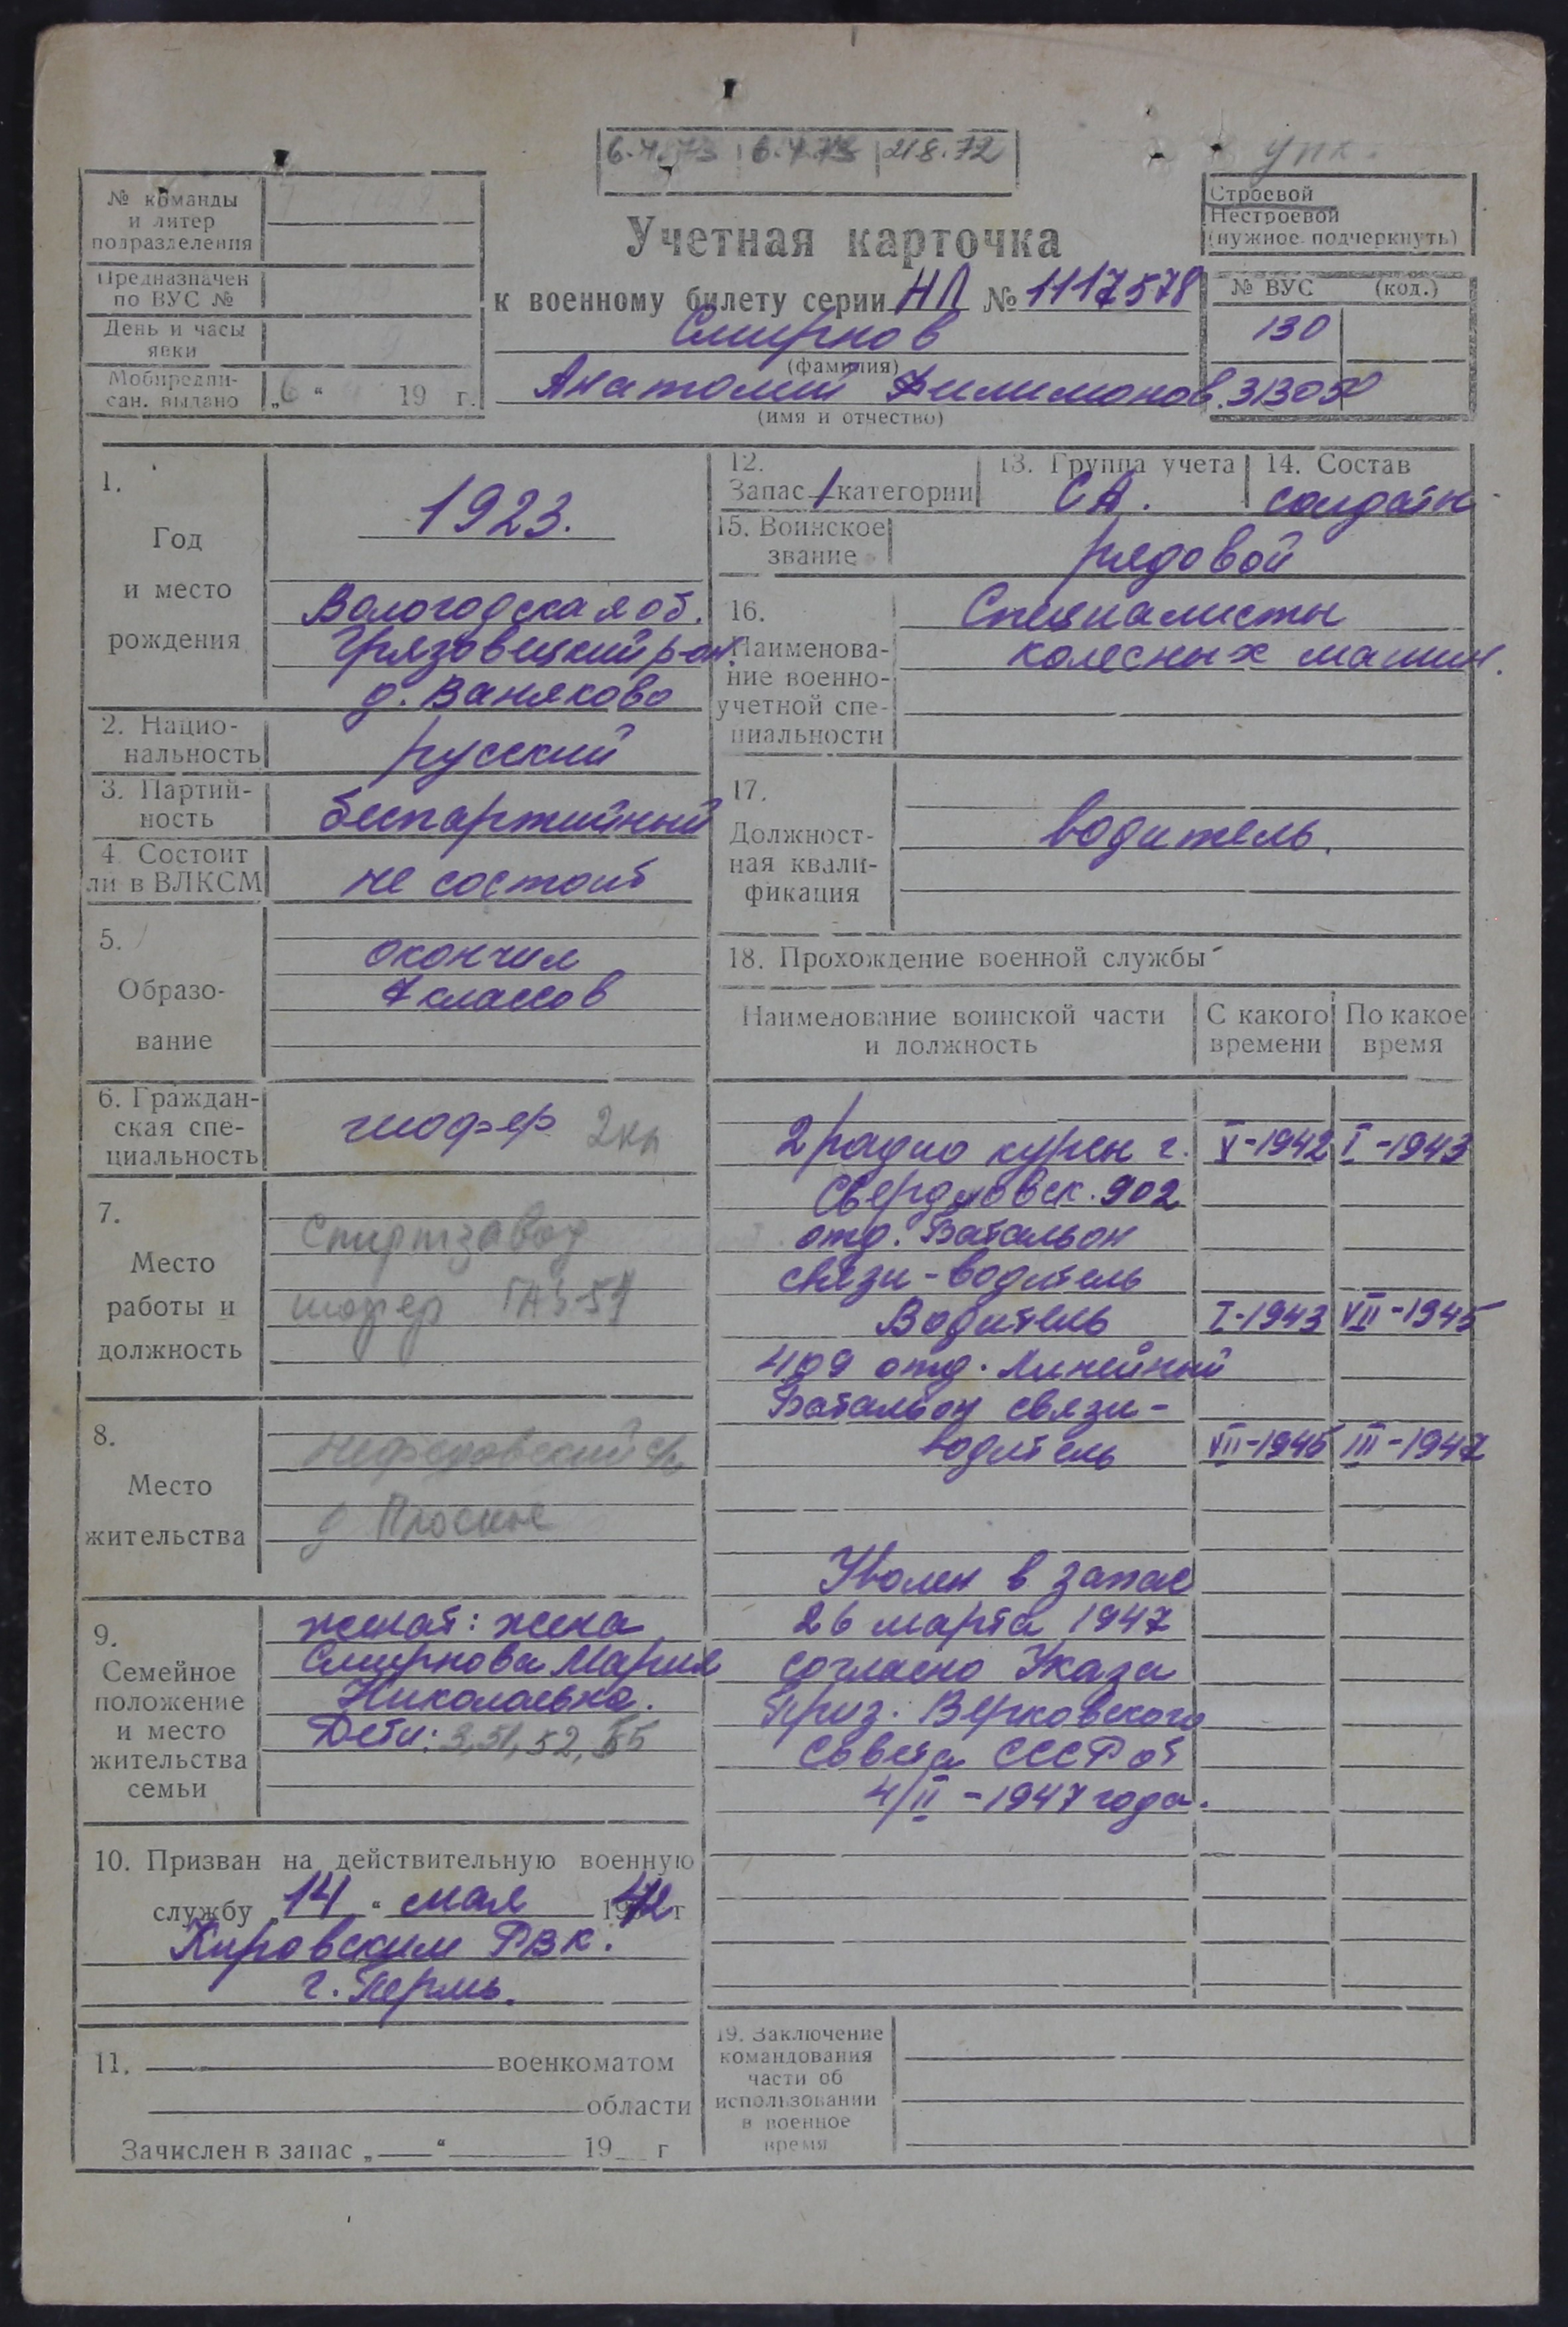 6.4.73 6.4.73 21.8.72
упк.
№ команды
и литер
подразделения
Предназначен
по ВУС №
День и часы
явки
Мобпредпи-
сан. выдано „6“ 19 г.
Учетная карточка
к военному билету серии НЛ № 1117578
Смирнов
(фамилия)
Анатолий Филимонов.
(имя и отчество)
Строевой
Нестроевой
(нужное подчеркнуть)
№ ВУС (код.)
130
313050
1.
Год
и место
рождения
1923.
Вологодская об.
Грязовецкий р-он.
д. Ваняково
2. Нацио-
нальность
русский
3. Партий-
ность
беспартийный
4. Состоит
ли в ВЛКСМ
не состоит
5.
Образо-
вание
окончил
7 классов
6. Граждан-
ская спе-
циальность
шофер 2кл
7.
Место
работы и
должность
Спиртзавод
шофер ГАЗ-51
8.
Место
жительства
Нефедовский с/с
д Плоское
9.
Семейное
положение
и место
жительства
семьи
женат: жена
Смирнова Мария
Николаевна.
Дети: 3, 51, 52, 55
10. Призван на действительную военную
службу „14“ мая 1942 г
Кировским РВК.
г. Пермь.
11. военкоматом
области
Зачислен в запас „ “ 19 г
12.
Запас 1 категории
13. Группа учета
СА.
14. Состав
солдаты
15. Воинское
звание
рядовой
16.
Наименова-
ние военно-
учетной спе-
циальности
Специалисты
колесных машин.
17.
Должност-
ная квали-
фикация
водитель.
18. Прохождение военной службы
Наименование воинской части
и должность
С какого
времени
По какое
время
2 радио курсы г. V-1942 I-1943
Свердловск. 902
отд. Батальон
связи - водитель
Водитель I-1943 VII-1945
409 отд. Линейный
Батальон связи -
водитель VII-1945 III-1947
Уволен в запас
26 марта 1947
согласно Указа
През. Верховского
Совета СССР от
4/II - 1947 года.
19. Заключение
командования
части об
использовании
в военное
время